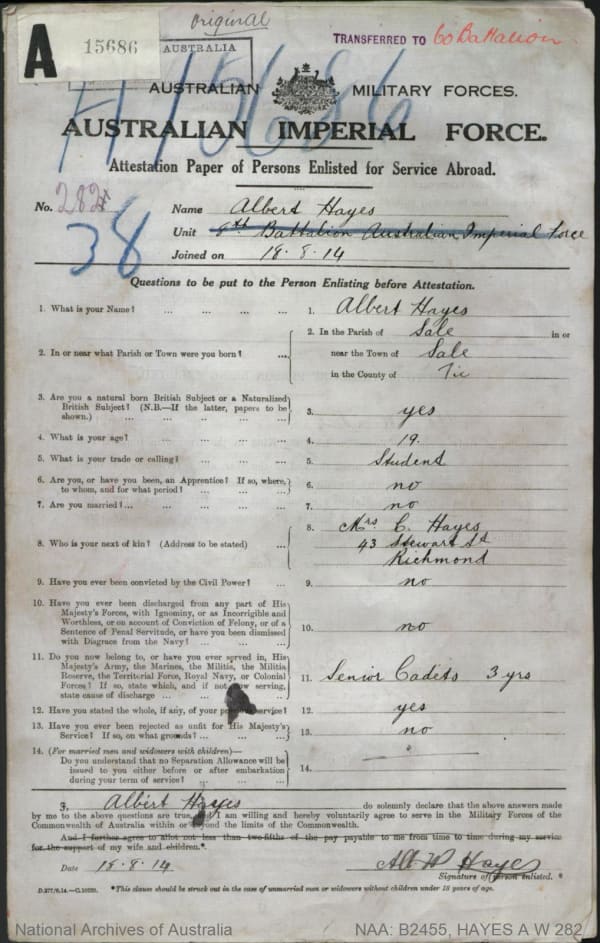 original
A
15686
AUSTRALIA
TRANSFERRED TO 60 Battalion
H 15686
AUSTRALIAN MILITARY FORCES.
AUSTRALIAN IMPERIAL FORCE.
Attestation Paper of Persons Enlisted for Service Abroad.
No. 282
38
Name Albert Hayes
Unit 8th Battalion Australian Imperial Force
Joined on 18.8.14
Questions to be put to the Person Enlisting before Attestation.
1. What is your Name? ... ... ... ...
1. Albert Hayes
2. In or near what Parish or Town were you born? ...
2. In the Parish of Sale in or
near the Town of Sale
in the County of Vic
3. Are you a natural born British Subject or a Naturalized
British Subject? (N.B.—If the latter, papers to be
shown.) ... ... ... ...
3. yes
4. What is your age? ... ... ... ...
4. 19.
5. What is your trade or calling? ... ... ...
5. Student
6. Are you, or have you been, an Apprentice? If so, where,
to whom, and for what period? ... ... ...
6. no
7. Are you married?... ... ... ... ...
7. no
8. Who is your next of kin? (Address to be stated) ...
8. Mrs C. Hayes
43 Stewart St
Richmond
9. Have you ever been convicted by the Civil Power? ...
9. no
10. Have you ever been discharged from any part of His
Majesty's Forces, with Ignominy, or as Incorrigible and
Worthless, or on account of Conviction of Felony, or of a
Sentence of Penal Servitude, or have you been dismissed
with Disgrace from the Navy? ... ... ...
10. no
11. Do you now belong to, or have you ever served in, His
Majesty's Army, the Marines, the Militia, the Militia
Reserve, the Territorial Force, Royal Navy, or Colonial
Forces? If so, state which, and if not now serving,
state cause of discharge ... ... ...
11. Senior Cadets 3 yrs
12. Have you stated the whole, if any, of your previous service?
12. yes
13. Have you ever been rejected as unfit for His Majesty's
Service? If so, on what grounds? ... ...
13. no
14. (For married men and widowers with children)—
Do you understand that no Separation Allowance will be
issued to you either before or after embarkation
during your term of service? ... ... ...
14.
I, Albert Hayes do solemnly declare that the above answers made
by me to the above questions are true, and I am willing and hereby voluntarily agree to serve in the Military Forces of the
Commonwealth of Australia within or beyond the limits of the Commonwealth.
And I further agree to allot not less than two-fifths of the pay payable to me from time to time during my service
for the support of my wife and children.*
Date 18.8.14
Alb W Hayes
Signature of person enlisted. *
D.277/6.14.—C.10620.
*This clause should be struck out in the case of unmarried men or widowers without children under 18 years of age.
National Archives of Australia
NAA: B2455, HAYES A W 282